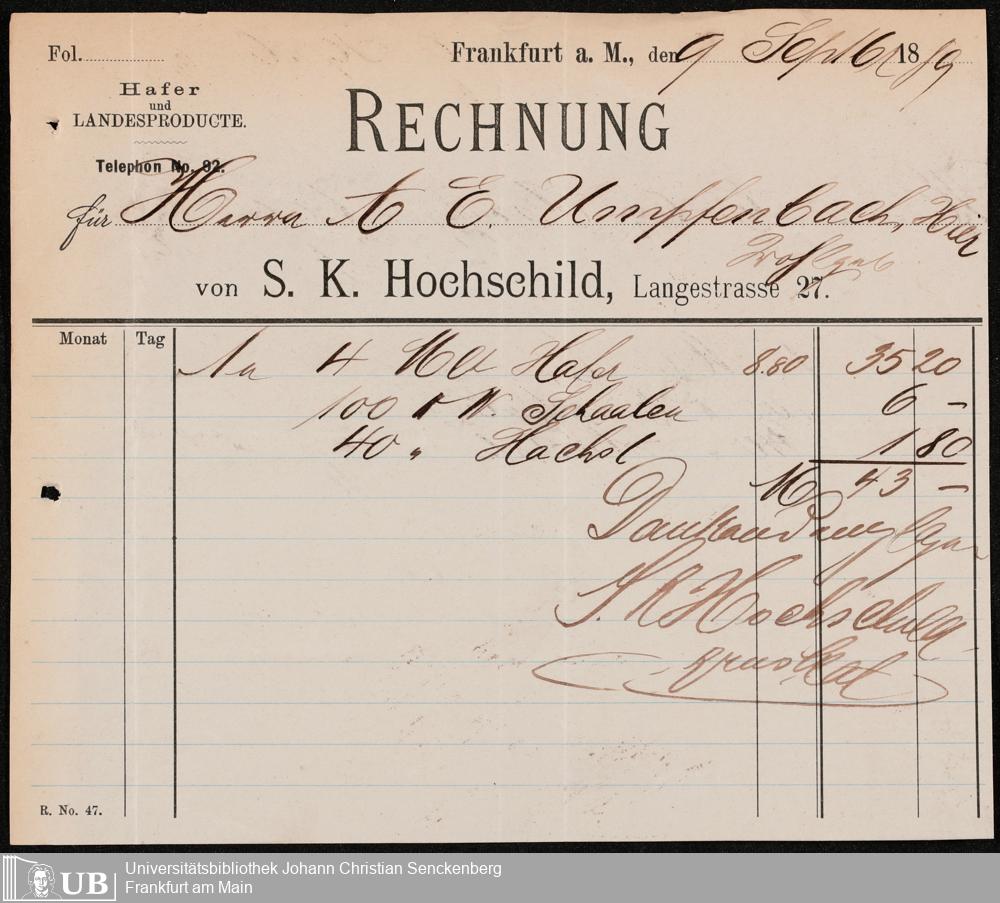 Fol.
Frankfurt a. M., den 9 Septbr 1889
Hafer
und
LANDESPRODUCTE.
RECHNUNG
Telephon No. 82.
für Herrn A E. Umpfenbach, Hier
von S. K. Hochschild, Langestrasse 27.
Monat Tag
1a 4 Hafer 8.80 35 20
100 Schaalen 6 –
40 " 1 80
M 43 –
Dankend
S. K Hochschild
R. No. 47.
Universitätsbibliothek Johann Christian Senckenberg
UB
Frankfurt am Main